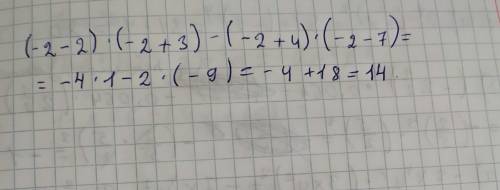 (-2-2)·(-2+3)-(-2+4)·(-2-7)=
= -4·1-2·(-9)=-4+18=14.